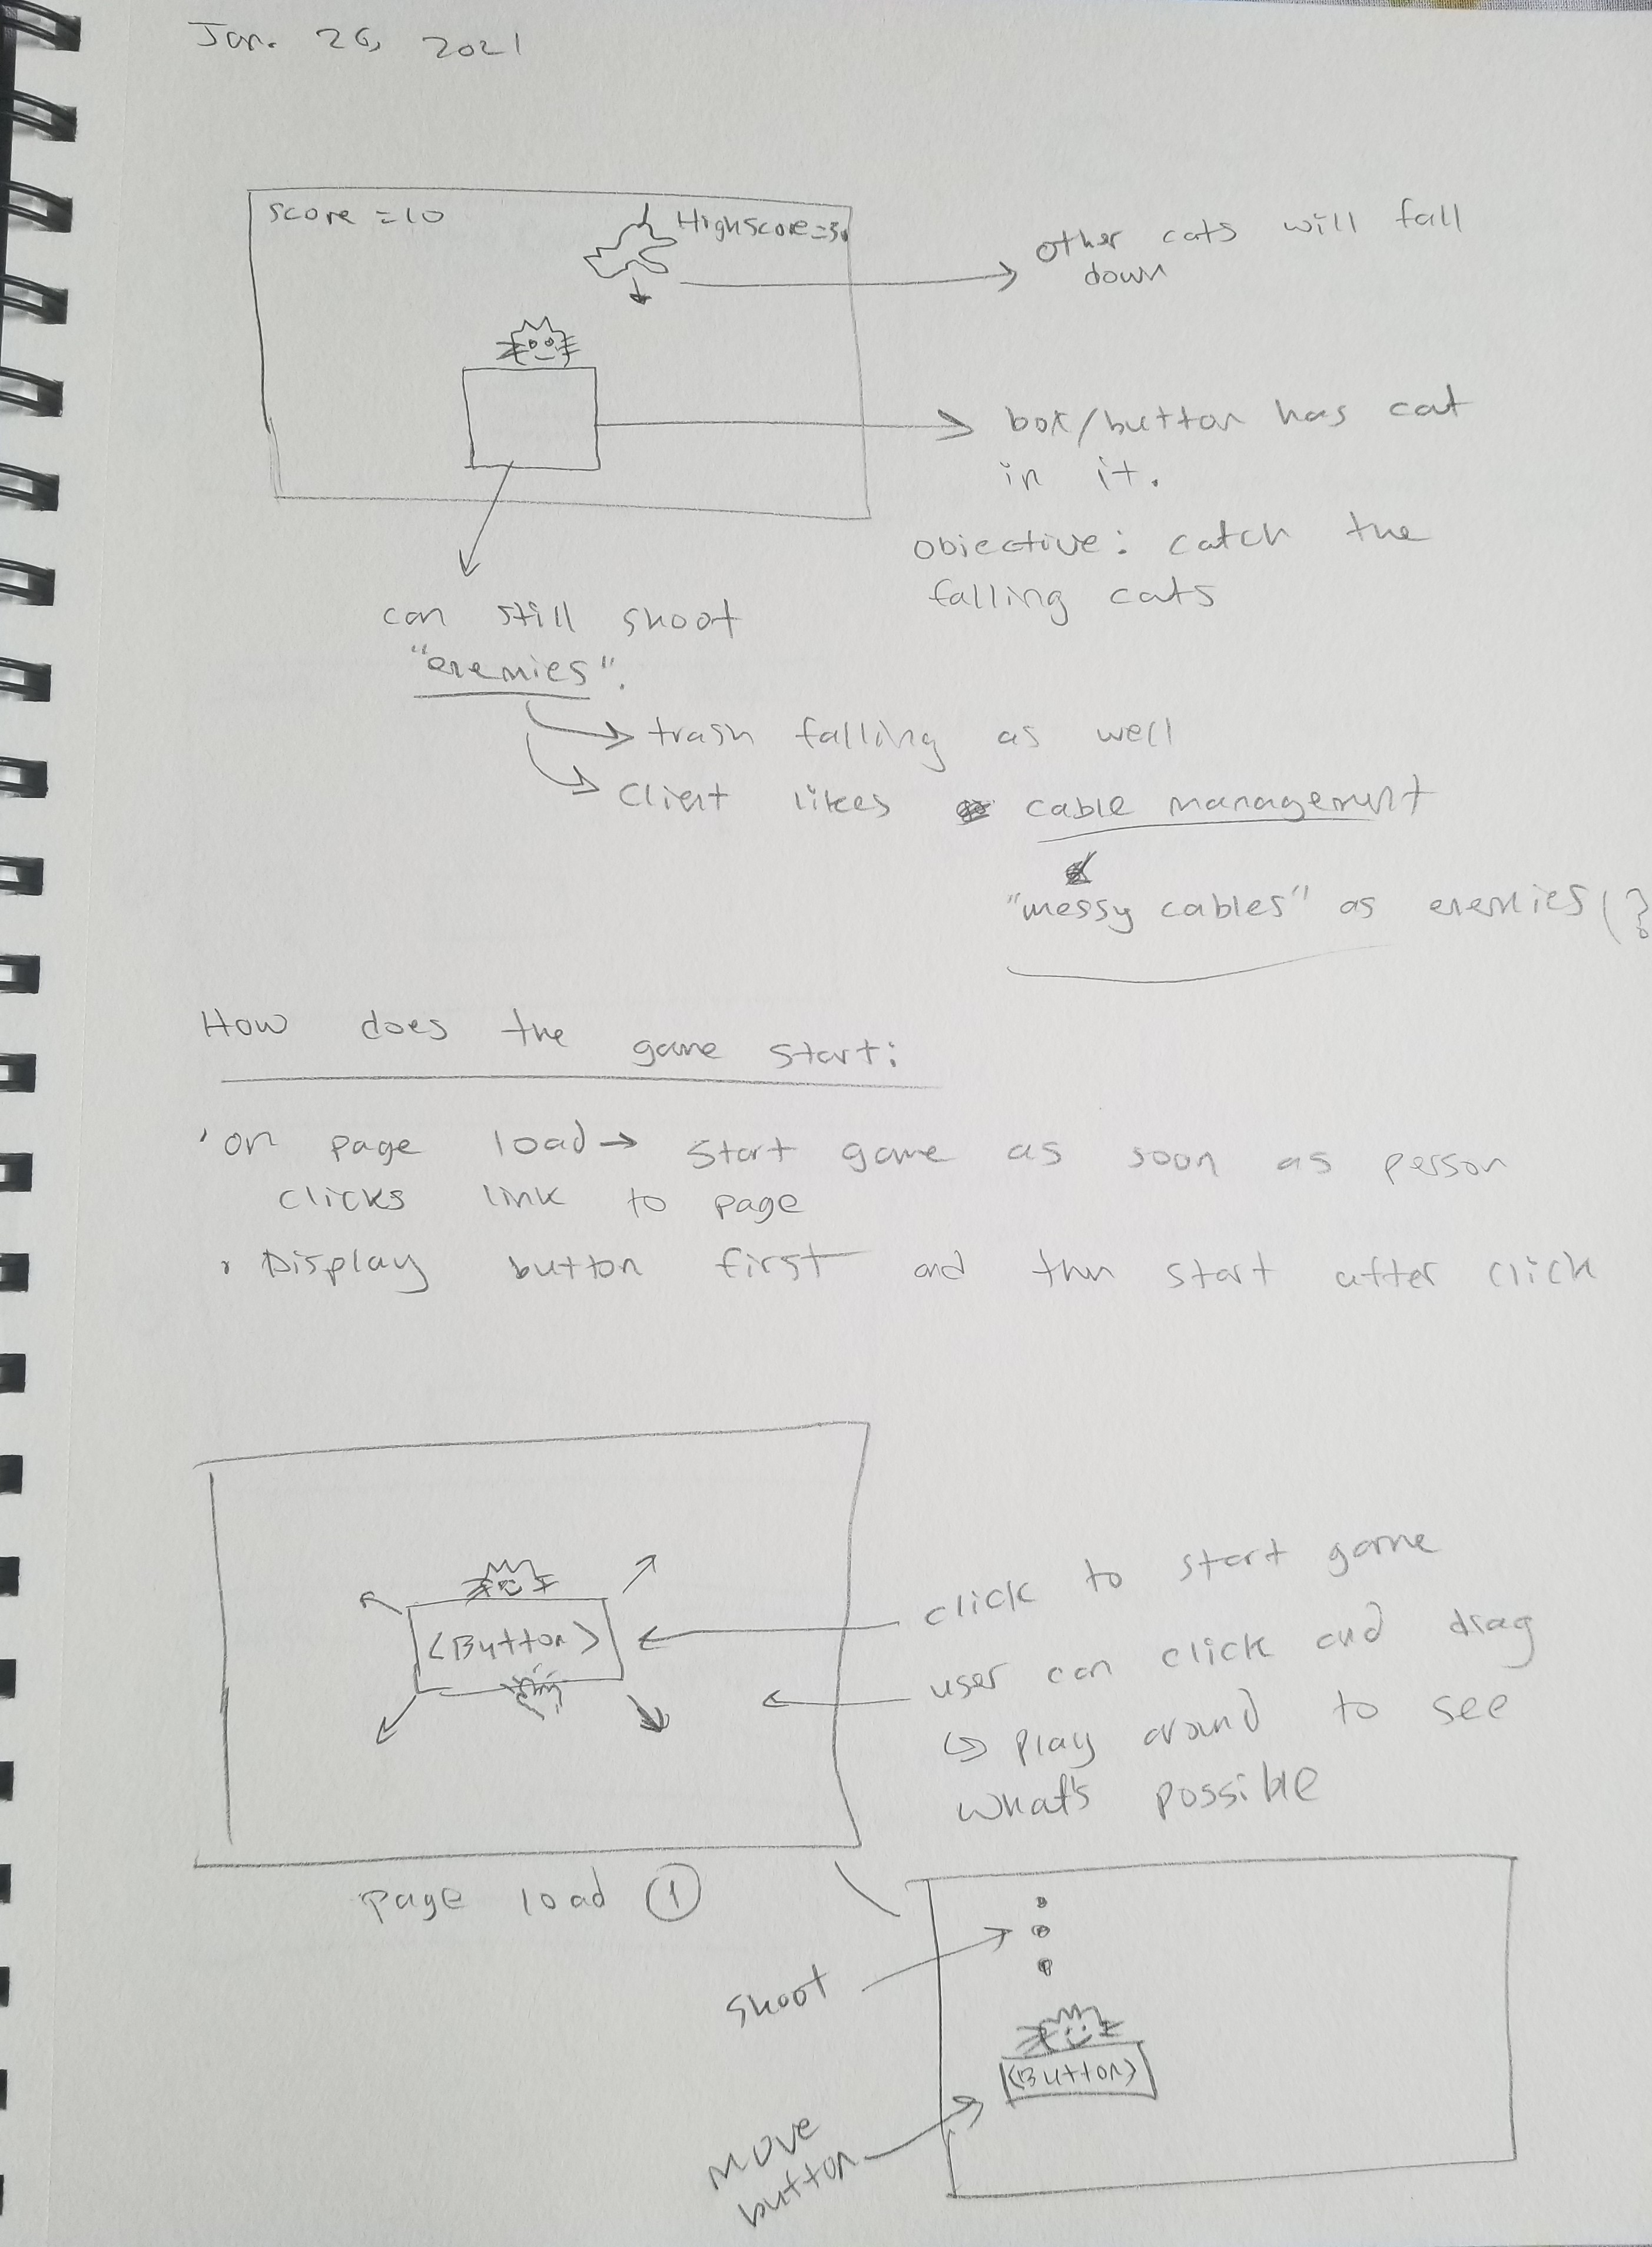 Jan. 26, 2021
score = 10
Highscore = 30
other cats will fall
down
box/button has cat
in it.
objective: catch the
falling cats
can still shoot
"enemies".
trash falling as well
client likes cable management
"messy cables" as enemies (?
How does the game start:
• on page load → start game as soon as person
clicks link to page
• Display button first and then start after click
<Button>
click to start game
user can click and drag
↳ play around to see
what's possible
page load ①
shoot
<Button>
move
button